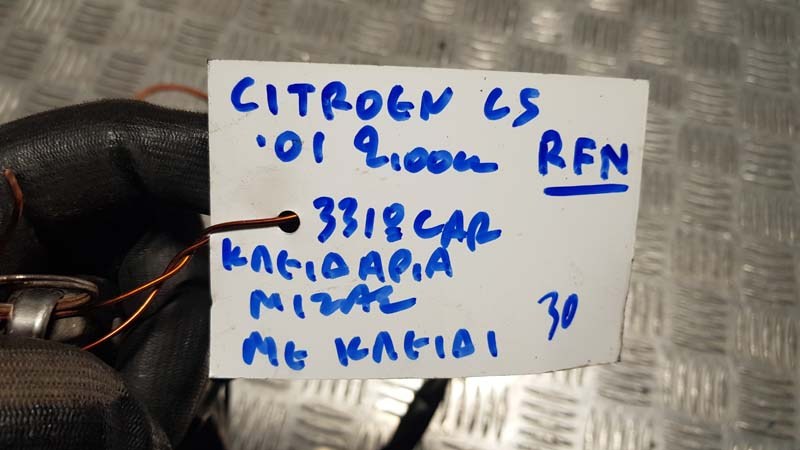 CITROEN C5
'01 2.00cc RFN
3318CAR
ΚΛΕΙΔΑΡΙΑ
ΜΙΖΑΣ
ΜΕ ΚΛΕΙΔΙ 30